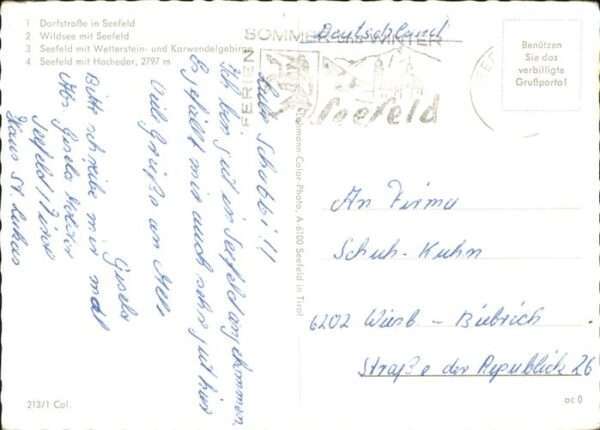 1 Dorfstraße in Seefeld
2 Wildsee mit Seefeld
3 Seefeld mit Wetterstein- und Karwendelgebirge
4 Seefeld mit Hocheder, 2797 m
FERIEN
SOMMER UND WINTER
Seefeld
Deutschland
Benützen
Sie das
verbilligte
Grußporto!
Liebe Schabbi!!
Ich bin gut in Seefeld angekommen,
Es gefällt mir auch sehr gut hier
Viele Grüße an Alle
Gisela
Bitte schreibe mir mal
Abs Gisela
Seefeld / Tirol
Haus St Lukas
Color-Photo, A-6100 Seefeld in Tirol
An Firma
Schuh-Kuhn
6202 Wiesb - Biebrich
Straße der Republick 26
213/1 Col.
ac 0